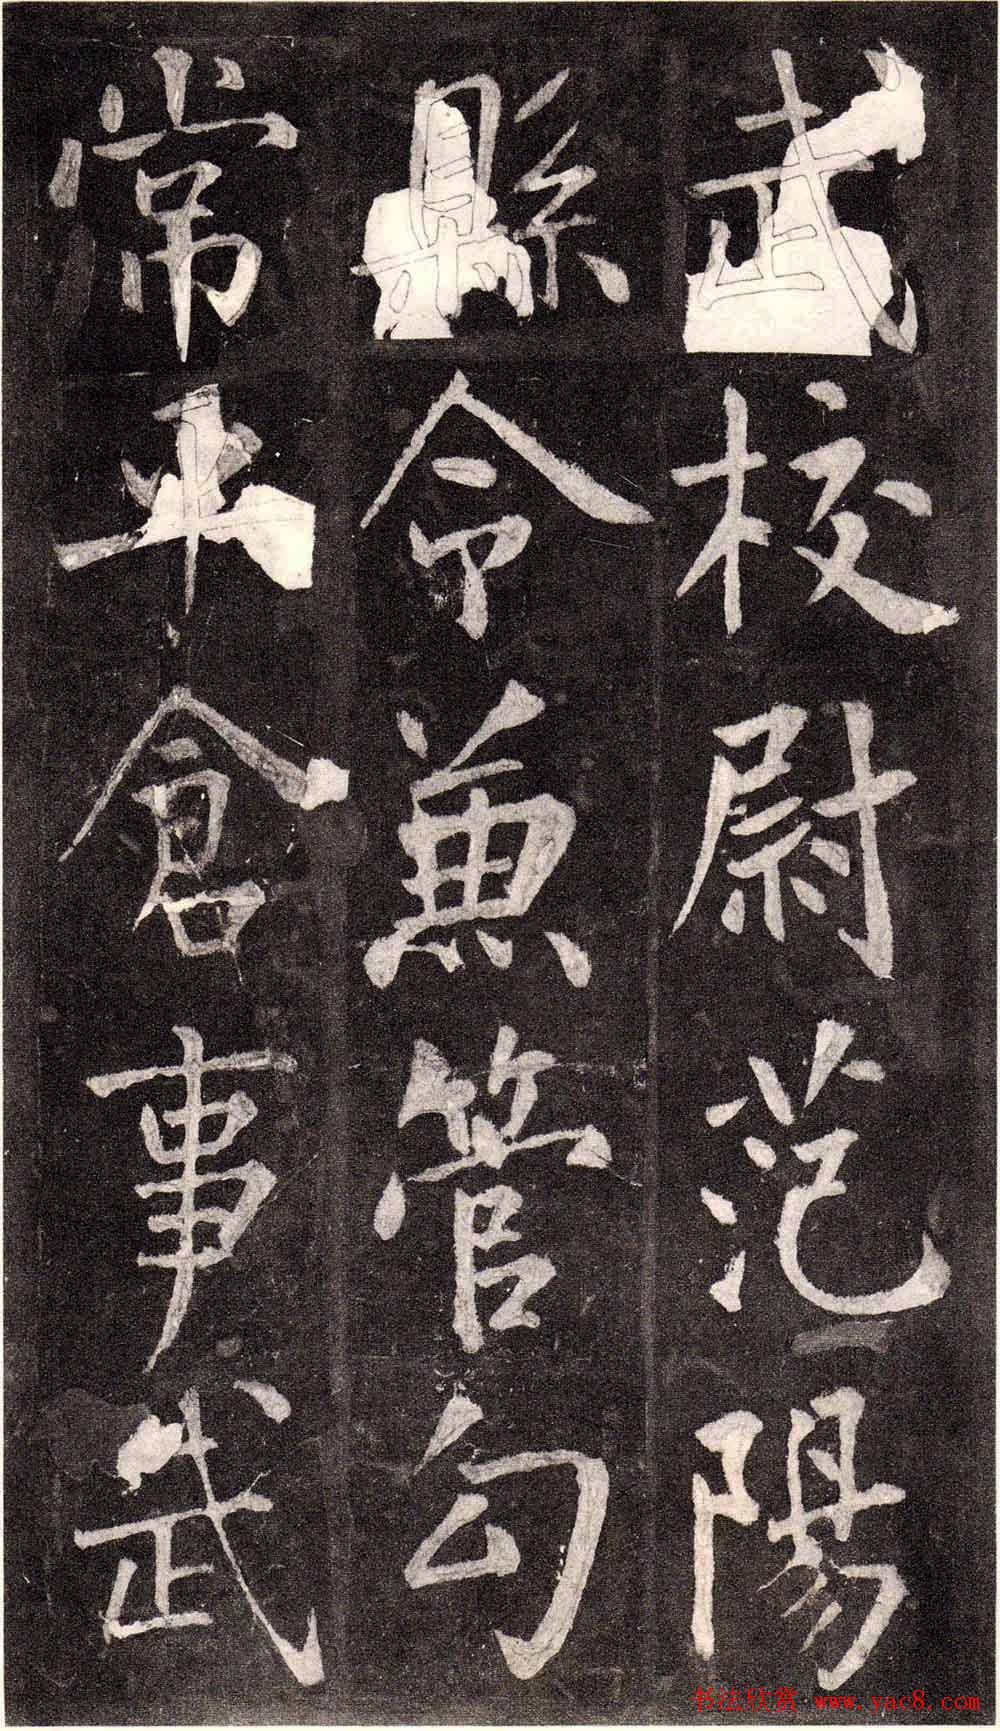 武校尉范陽
縣令兼管勾
常平倉事武
书法欣赏 www.yac8.com